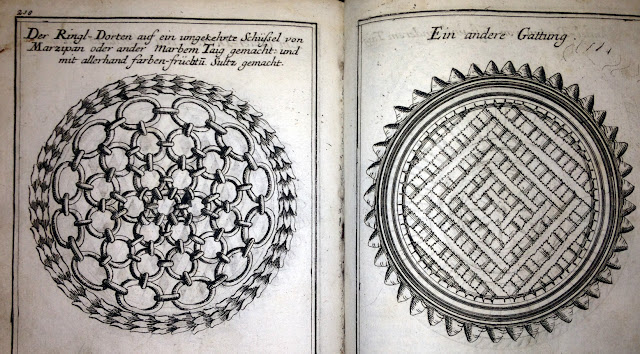 210
Der Ringl-Dorten auf ein umgekehrte Schüßel von
Marzipan oder ander Marbem Taig gemacht: und
mit allerhand farben-früchtũ Sultz gemacht.
Ein andere Gattung.